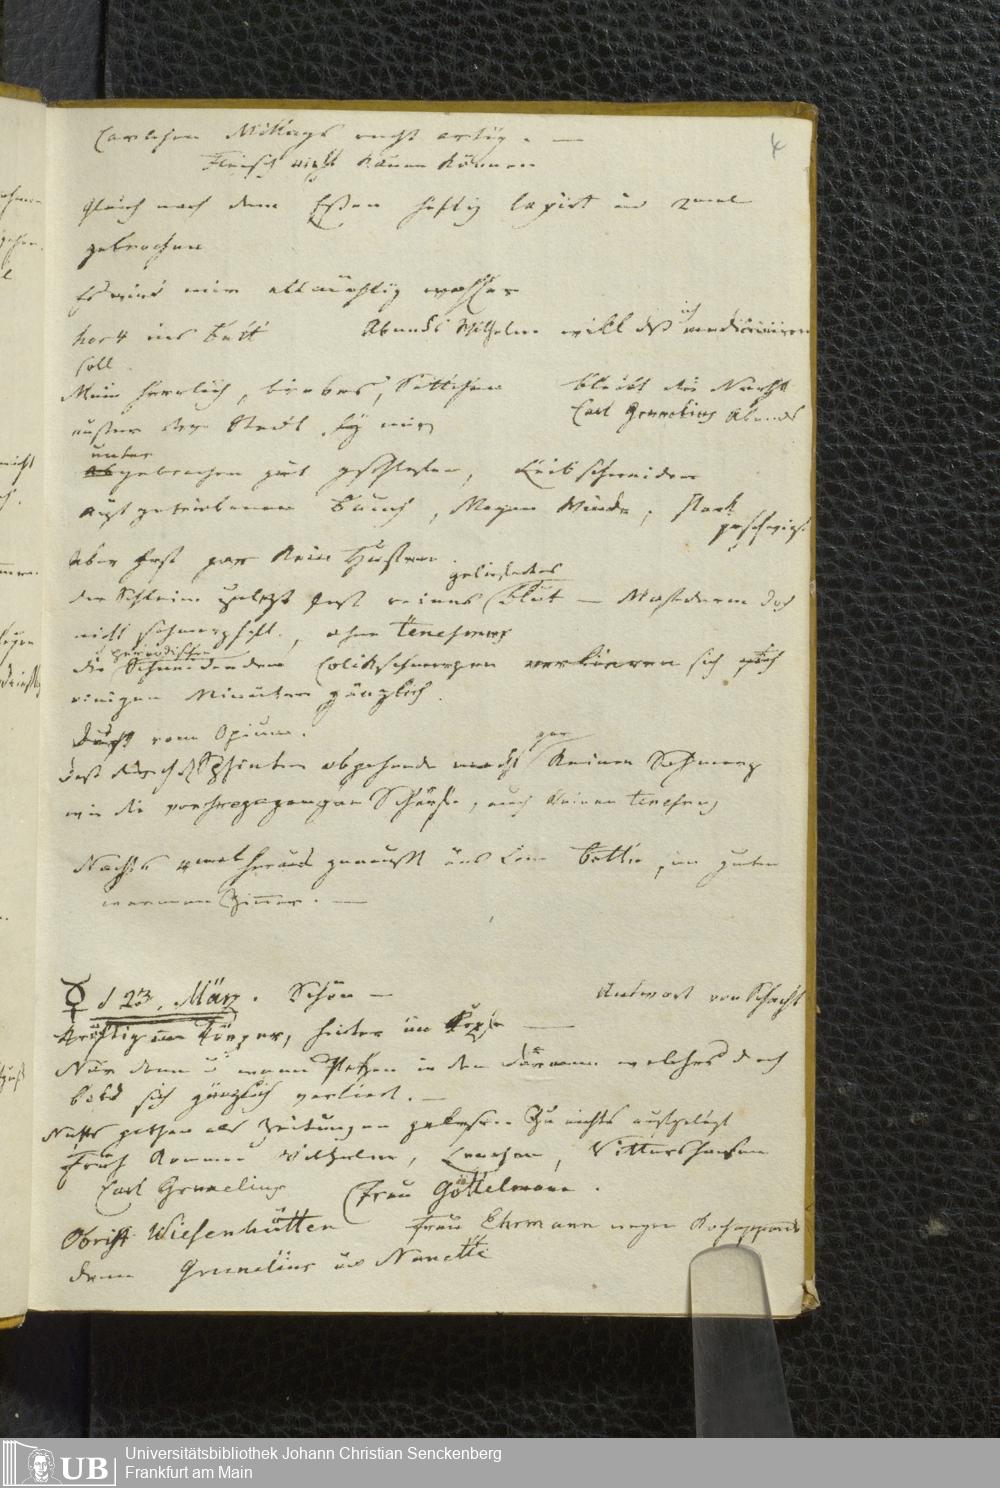 4
Carlchen Mittags recht artig. —
Fleisch nicht kauen können
Gleich nach dem Eßen heftig laxirt und 2mal
gebrochen
Es wird mir allmählig
ins Bett Abends Wilhelm will daß ich mediciniren
soll.
Mein herrlich, liebes, Settchen bleibt die Nacht
außer der Stadt, bey mir Carl Grunelius Abends
unter
abgebrochen gut geschlafen, Leibschneiden
aufgetriebenen Bauch, Magen Winde, stark
geschwizt
Aber fast gar kein Husten
geliefertes
der Schleim zuletzt fast reines Blut — Mastdarm doch
nicht schmerzhaft, ohne Tenesmus
periodischen
die Schneidenden Colikschmerzen verlieren sich nach
einigen Minuten gänzlich.
Durst vom Opium.
gar
Das durch abgehende macht keinen Schmerz
wie die vorhergegangen Schärfe, auch keinen Tenesmus
Nachts 4mal heraus gemußt aus dem Bette, im guten
warmen Zimmer. —
☿ d 23. März. Schön — Antwort von Schacht
Kräftig im Körper, heiter im Kopfe —
Nur dann u wann in den Därmen welches doch
bald sich gänzlich verliert. —
Nichts gethan als Zeitungen gelesen Zu nichts aufgelegt
Früh kommen Wilhelm, Lenchen,
Carl Grunelius (Frau Göttelmann.
Obrist Wiesenhütten Frau Ehrmann wegen
dann Grunelius und Nanette
UB Universitätsbibliothek Johann Christian Senckenberg
Frankfurt am Main